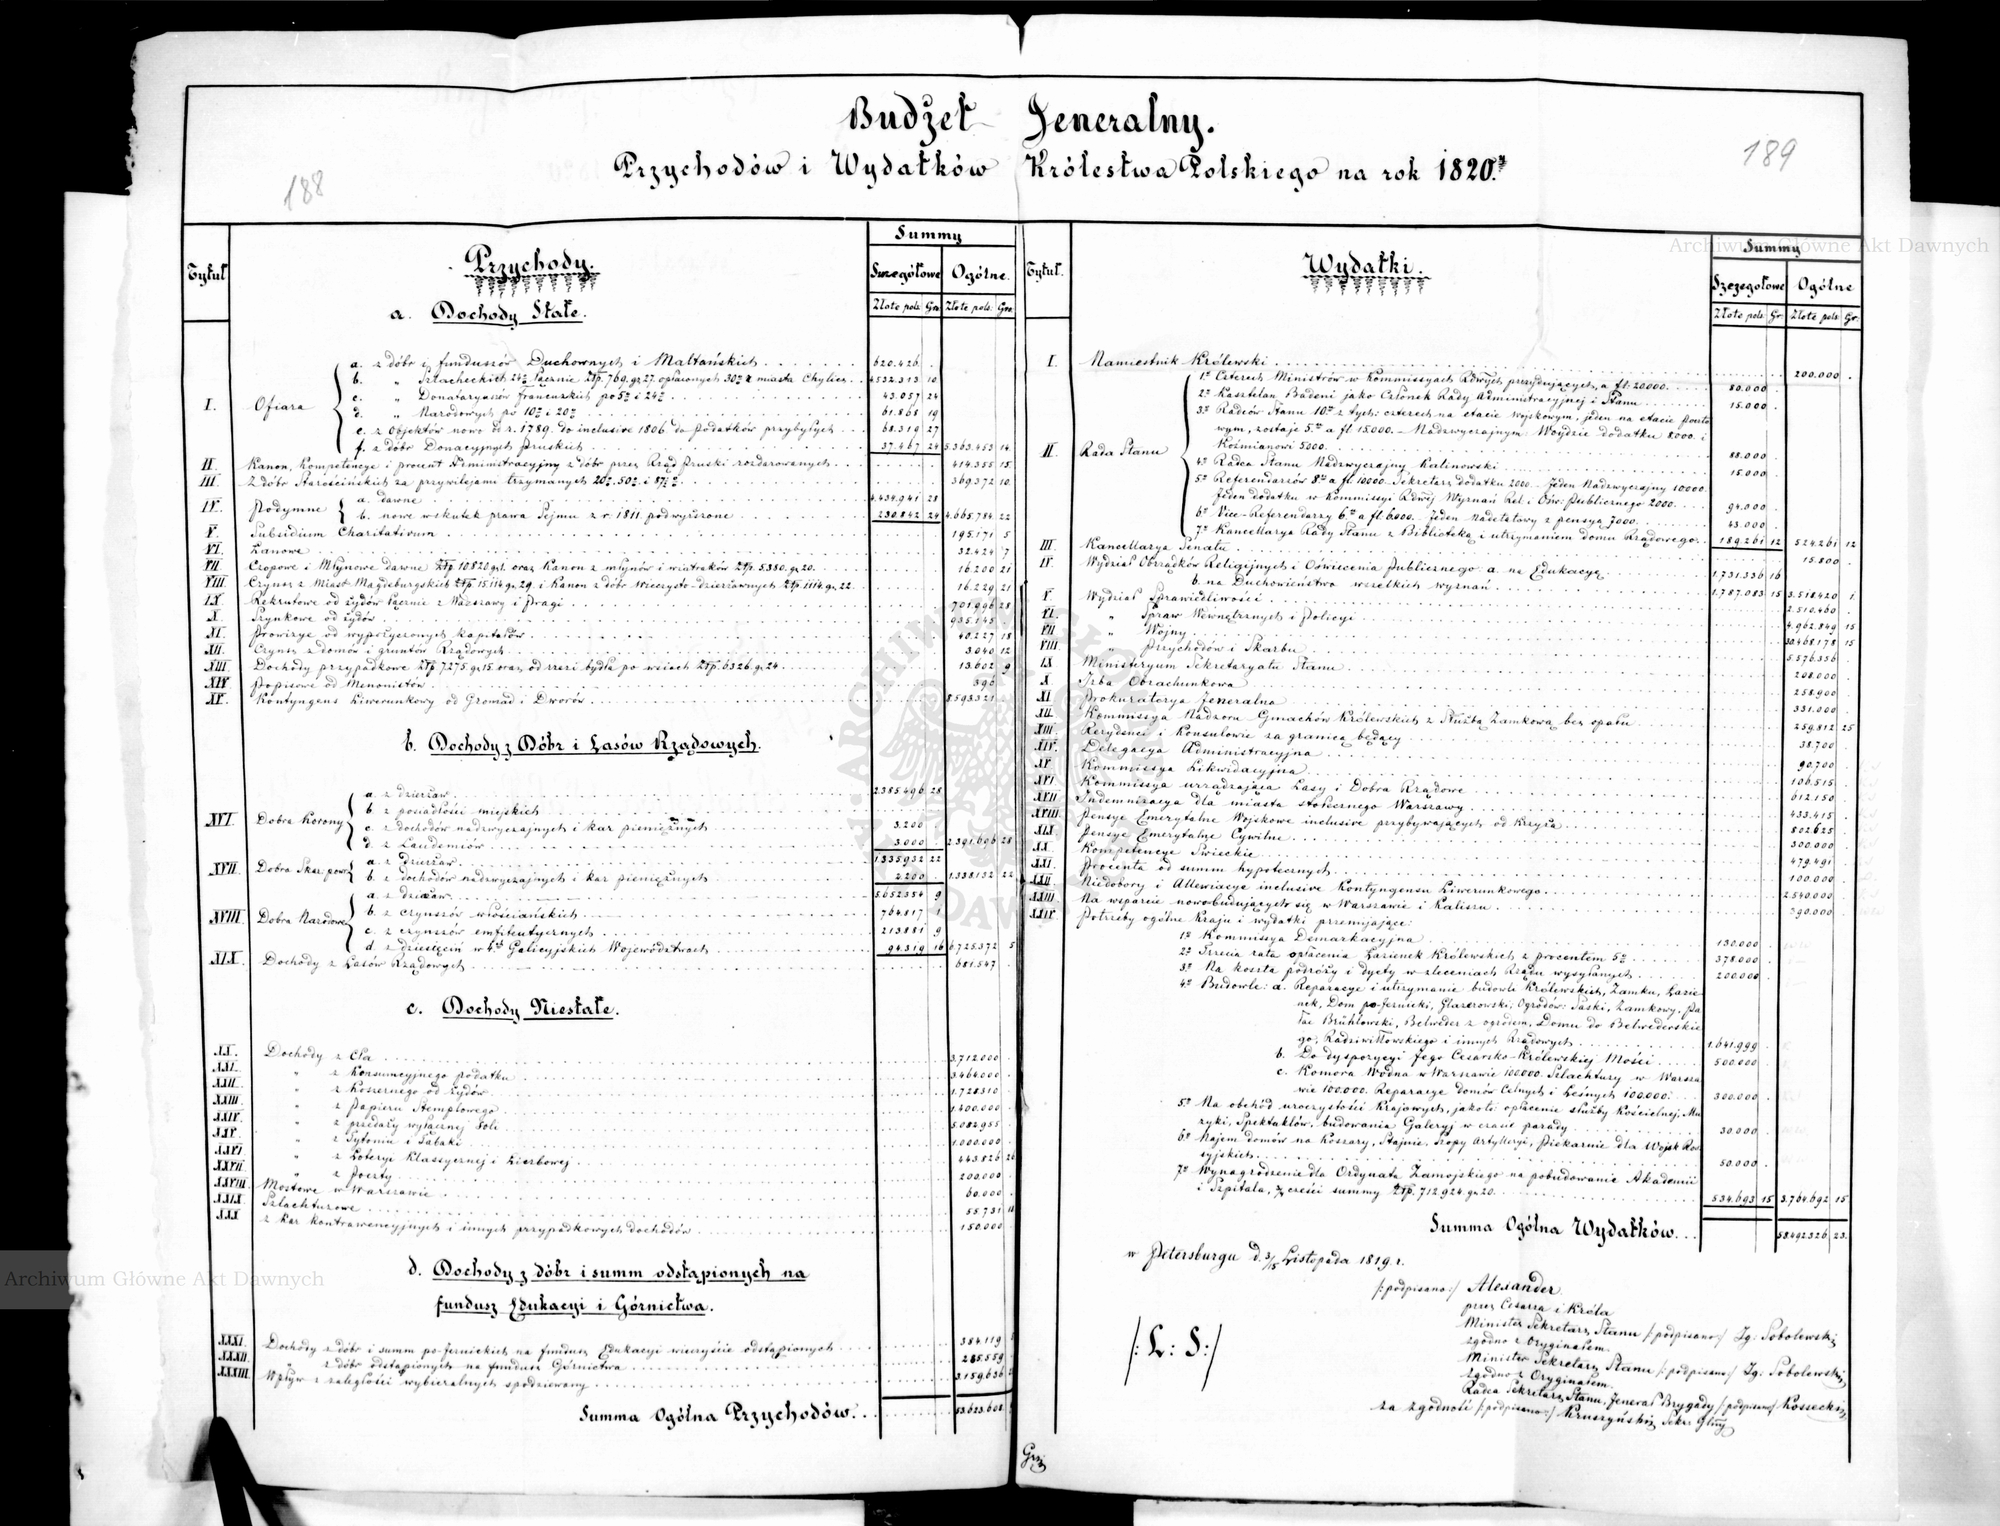 Budżet Jeneralny.
Przychodów i Wydatków Królestwa Polskiego na rok 1820.
188
189
Archiwum Główne Akt Dawnych
Tytuł
Przychody.
Summy
Szczegółowe Ogólne.
Złote pols: Gr. Złote pols: Gro.
a. Dochody Stałe.
I. Ofiara
a. z dóbr i funduszów Duchownych i Maltańskich 620.426
b. " Szlacheckich 24 łącznie Złp. 769. gr 27. opłaconych 30 z miasta Chylicz 4532.313 10
c. " Donataryuszów francuskich po 5 i 24 43.057 24
d. " Narodowych po 10 i 20 61.868 19
e. z objektów nowo od r. 1789. do inclusive 1806. do podatków przybyłych 68.319 27
f. z dóbr Donacyjnych pruskich 37.467 24 5.363.453 14
II. Kanon, Kompetencye i procent Administracyjny z dóbr przez Rząd pruski rozdarowanych 414.355 15
III. Z dóbr Starościńskich za przywilejami trzymanych 20 50 i 87½ 369.372 10
IV. Podymne
a. dawne 4.434.941 28
b. nowe wskutek prawa Sejmu z r. 1811. podwyższone 230.842 24 4.665.784 22
V. Subsidium Charitativum 195.171 5
VI. Łanowe 32.424 7
VII. Czopowe i Młynowe dawne Złp. 10820 gr 1. oraz Kanon z młynów i wiatraków Złp. 5380. gr. 20. 16.200 21
VIII. Czynsz z Miast Magdeburgskich Złp. 15114 gr. 29. i Kanon z dóbr Wieczysto dzierżawnych Złp. 1114 gr. 22. 16.229 21
IX. Rekrutowe od żydów łącznie z Warszawy i Pragi 701.996 28
X. Szynkowe od żydów 935.145
XI. Prowizye od wypożyczonych kapitałów 40.227 18
XII. Czynsz z domów i gruntów Rządowych 3.040 12
XIII. Dochody przypadkowe Złp. 7275 gr. 15. oraz od rzezi bydła po wsiach Złp. 6326. gr. 24. 13.602 9
XIV. Popisowe od Menonistów 396
XV. Kontyngens Liwerunkowy od Gromad i Dworów 8593.321
b. Dochody z Dóbr i Lasów Rządowych.
XVI. Dobra Korony
a. z dzierżaw 2385.496 28
b. z posiadłości miejskich
c. z dochodów nadzwyczajnych i kar pieniężnych 3.200
d. z Laudemiów 3.000 2.391.696 28
XVII. Dobra Skar: powr
a. z dzierżaw 1.335.932 22
b. z dochodów nadzwyczajnych i kar pieniężnych 2.200 1.338.132 22
XVIII. Dobra Narodowe
a. z dzierżaw 5.652.354 9
b. z czynszów włościańskich 764.817 1
c. z czynszów emfiteutycznych 213.881 9
d. z dziesięcin w 4ch Galicyjskich Województwach 94.319 16 6.725.372 5
XIX. Dochody z Lasów Rządowych 681.547
c. Dochody Niestałe.
XX. Dochody z Cła 3.712.000
XXI. " z Konsumcyjnego podatku 3.464.000
XXII. " z Koszernego od żydów 1.728.310
XXIII. " z Papieru Stemplowego 1.400.000
XXIV. " z przedaży wyłącznej Soli 5.082.955
XXV. " z Tytoniu i Tabaki 1.000.000
XXVI. " z Loteryi Klassycznej i Liczbowej 443.826 26
XXVII. " z Poczty 200.000
XXVIII. Mostowe w Warszawie 60.000
XXIX. Szlachtuzowe 55.731
XXX. z kar kontrawencyjnych i innych przypadkowych dochodów 150.000
d. Dochody z dóbr i summ odstąpionych na
fundusz Edukacyi i Górnictwa.
XXXI. Dochody z dóbr i summ po-Jezuickich na fundusz Edukacyi wieczyście odstąpionych 384.119
XXXII. " z dóbr odstąpionych na fundusz Górnictwa 285.559
XXXIII. Wpływ z zaległości wybieralnych spodziewany 3.159.636
Summa Ogólna Przychodów. 53.623.608
Tytuł.
Wydatki.
Summy
Szczegółowe Ogólne
Złote pols: Gr. Złote pols: Gr.
I. Namiestnik Królewski 200.000
II. Rada Stanu
1º Czterech Ministrów w Kommissyach Rdwych prezydujących, a fl: 20.000. 80.000
2º Kasztelan Badeni jako Członek Rady Administracyjnej i Stanu 15.000
3º Radców Stanu 10 z tych: czterech na etacie Wojskowym, jeden na etacie poczto
wym, zostaje 5 a fl 15.000. – Nadzwyczajnym: Woydzie dodatku 8000. i
Koźmianowi 5000. 88.000
4º Radca Stanu Nadzwyczajny Kalinowski 15.000
5º Referendarzów 8 a fl. 10.000 – Sekretarz dodatku 2000 – Jeden Nadzwyczajny 10000.
Jeden dodatku w Kommissyi Rdwej Wyznań Rel: i Ośw: Publicznego 2000. 94.000
6º Vice-Referendarzy 6 a fl. 6.000. – Jeden Nadetatowy z pensyą 7000. 43.000
7º Kancellarya Rady Stanu z Biblioteką i utrzymaniem domu Rządowego. 189.261 12 524.261 12
III. Kancellarya Senatu 15.800
IV. Wydział Obrządków Religijnych i Oświecenia Publicznego: a. na Edukacyę 1.731.336 16
b. na Duchowieństwo wszelkich wyznań 1.787.083 15 3.518.420 1
V. Wydział Sprawiedliwości 2.510.460
VI. " Spraw Wewnętrznych i Policyi 4.962.849 15
VII. " Wojny 30.468.178 15
VIII. " Przychodów i Skarbu 5.576.336
IX. Ministeryum Sekretaryatu Stanu 208.000
X. Izba Obrachunkowa 258.900
XI. Prokuratorya Jeneralna 331.000
XII. Kommissya Nadzoru Gmachów Królewskich z Służbą Zamkową bez opału 259.812 25
XIII. Rezydenci i Konsulowie za granicą będący 38.700
XIV. Delegacya Administracyjna 90.700
XV. Kommissya Likwidacyjna 106.515
XVI. Kommissya urządzająca Lasy i Dobra Rządowe 612.150
XVII. Indemnizacya dla miasta stołecznego Warszawy 433.415
XVIII. Pensye Emerytalne Wojskowe inclusive przybywających od Krzyża 802.625
XIX. Pensye Emerytalne Cywilne 300.000
XX. Kompetencye Świeckie 479.491
XXI. Procenta od summ hypotecznych 100.000
XXII. Niedobory i Allewiacye inclusive Kontyngensu Liwerunkowego 2.540.000
XXIII. Na wsparcie nowobudujących się w Warszawie i Kaliszu 390.000
XXIV. Potrzeby ogólne Kraju i wydatki przemijające:
1º Kommissya Demarkacyjna 130.000
2º Trzecia rata opłacenia Łazienek Królewskich z procentem 5 378.000
3º Na koszta podróży i dyety w zleceniach Rządu wysyłanych 200.000
4º Budowle: a. Reparacye i utrzymanie budowli Królewskich, Zamku, Łazie-
nek, Dom po-Jezuicki, Glazerowski, Ogrodów: Saski, Zamkowy, Pa-
łac Brühlowski, Belweder z ogrodem, Domu do Belwederskie
go, Radziwiłłowskiego i innych Rządowych 1.641.999
b. Do dyspozycyi Jego Cesarsko-Królewskiej Mości 500.000
c. Komora Wodna w Warszawie 100.000. Szlachtuzy w Warsza
wie 100.000. Reparacye domów Celnych i Leśnych 100.000. 300.000
5º Na obchód uroczystości Krajowych, jakoto: opłacenie służby Kościelnej, Mu-
zyki, Spektaklów, budowania Galeryj w czasie parady 30.000
6º Najem domów na Koszary, Stajnie, Szopy Artylleryi, Piekarnie dla Wojsk Ros-
syjskich 50.000
7º Wynagrodzenie dla Ordynata Zamojskiego na pobudowanie Akademii
i Szpitala, części summy Złp. 712.924. gr. 20. 534.693 15 3.764.692 15
Summa Ogólna Wydatków. 58.492.326 23.
w Petersburgu d. 3/15 Listopada 1819. r.
/: podpisano :/ Alexander.
przez Cesarza i Króla
Minister Sekretarz Stanu /: podpisano :/ Ig: Sobolewski
zgodno z Oryginałem.
Minister Sekretarz Stanu /: podpisano :/ Ig: Sobolewski
zgodno z Oryginałem.
Radca Sekretarz Stanu, Jenerał Brygady /: podpisano :/ Kossecki
za zgodność /: podpisano :/ Kruszyński Sekr. Głny
/: L: S: /
Archiwum Główne Akt Dawnych